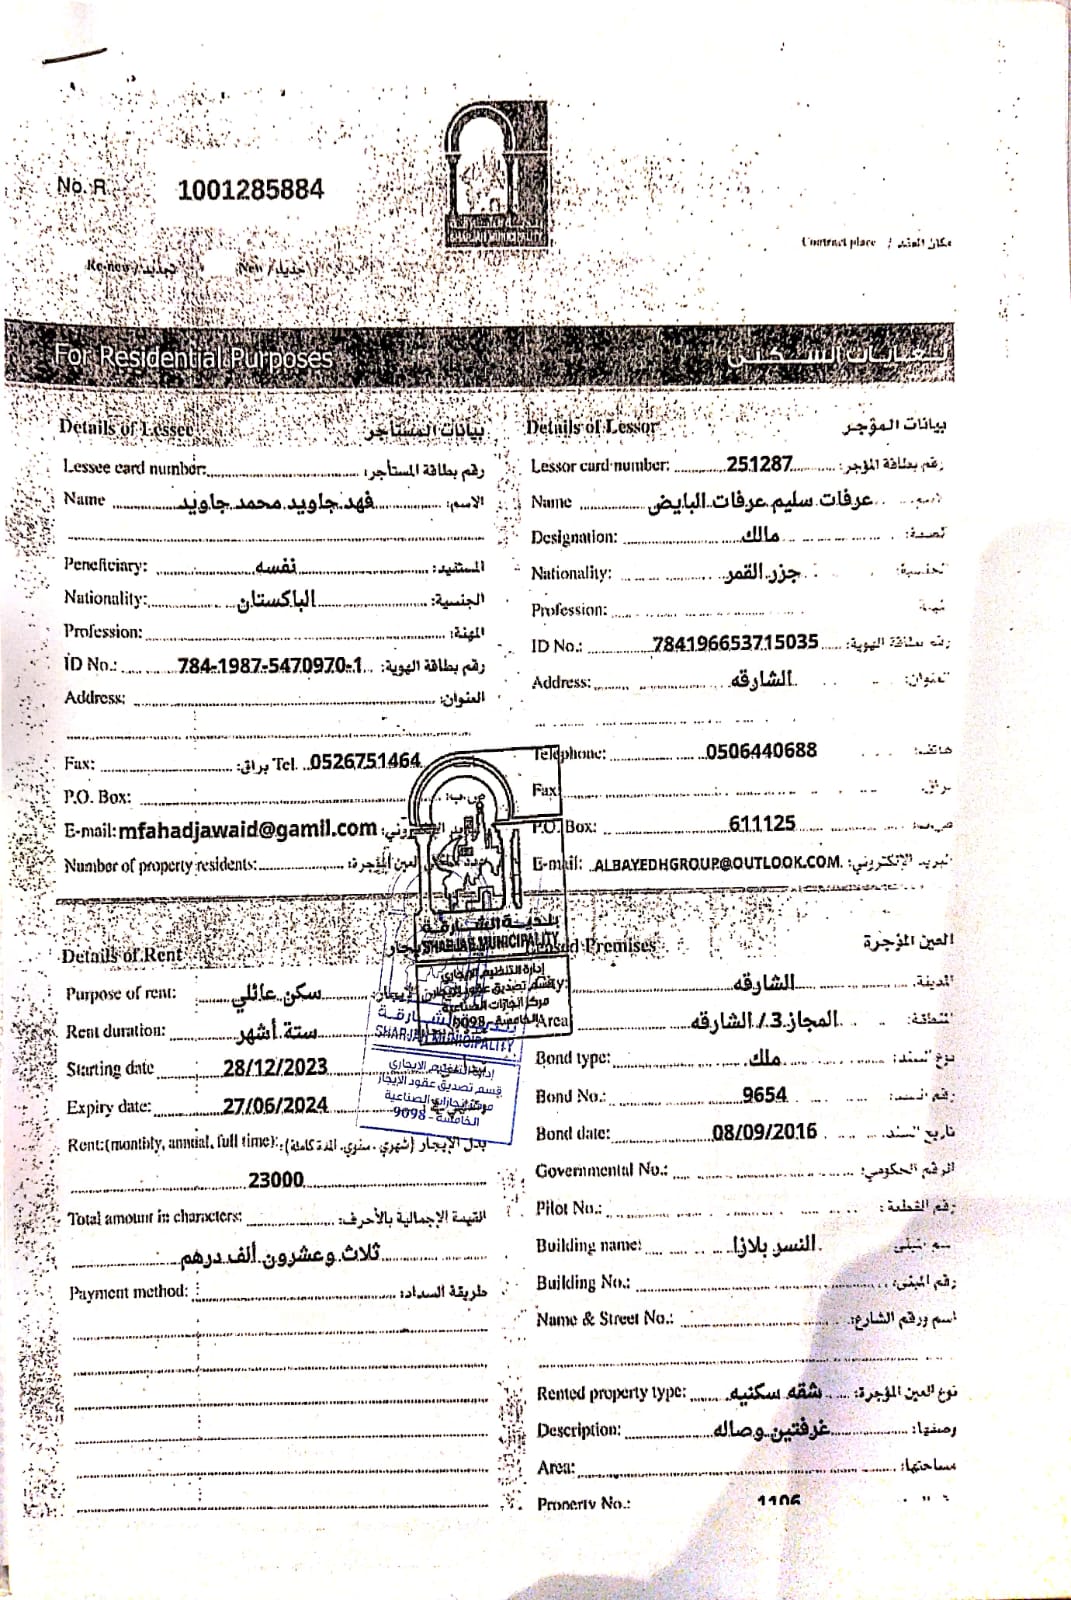 No. R 1001285884
SHARJAH MUNICIPALITY
Contract place / مكان العقد
Re-new / تجديد New / جديد
For Residential Purposes لغايات السكنى
Details of Lessee بيانات المستأجر
Lessee card number: رقم بطاقة المستأجر:
Name فهد جاويد محمد جاويد الاسم:
Peneficiary: نفسه المستفيد:
Nationality: الباكستان الجنسية:
Profession: المهنة:
ID No.: 784-1987-5470970-1 رقم بطاقة الهوية:
Address: العنوان:
Fax: براق: Tel. 0526751464
P.O. Box: ص.ب:
E-mail: mfahadjawaid@gamil.com
Number of property residents:
Details of Lessor بيانات المؤجر
Lessor card number: 251287 رقم بطاقة المؤجر:
Name عرفات سليم عرفات البايض
Designation: مالك
Nationality: جزر القمر
Profession:
ID No.: 784196653715035 رقم بطاقة الهوية:
Address: الشارقه العنوان:
Telephone: 0506440688 هاتف:
Fax
P.O. Box: 611125
E-mail: ALBAYEDHGROUP@OUTLOOK.COM البريد الإلكتروني:
Details of Rent
Purpose of rent: سكن عائلي
Rent duration: ستة أشهر
Starting date 28/12/2023
Expiry date: 27/06/2024
Rent:(monthly, annual, full time): بدل الإيجار (شهري . سنوي . المدة كاملة):
23000
Total amount in characters: القيمة الإجمالية بالأحرف:
ثلاث وعشرون ألف درهم
Payment method: طريقة السداد:
Premises العين المؤجرة
الشارقه المدينة:
Area المجاز 3 / الشارقه
Bond type: ملك نوع السند:
Bond No.: 9654
Bond date: 08/09/2016 تاريخ السند
Governmental No.: الرقم الحكومي:
Pilot No.: رقم القطعة:
Building name: النسر بلازا
Building No.: رقم المبنى:
Name & Street No.: اسم ورقم الشارع:
Rented property type: شقه سكنيه نوع العين المؤجرة:
Description: غرفتين وصاله وصفها:
Area: مساحتها:
Property No.: 1106
بلدية الشارقة
SHARJAH MUNICIPALITY
إدارة التنظيم الإيجاري
قسم تصديق عقود الإيجار
مركز إنجازات الصناعية
الخامسة - 9098
بلدية الشارقة
SHARJAH MUNICIPALITY
إدارة التنظيم الايجاري
قسم تصديق عقود الايجار
مركز إنجازات الصناعية
الخامسة - 9098